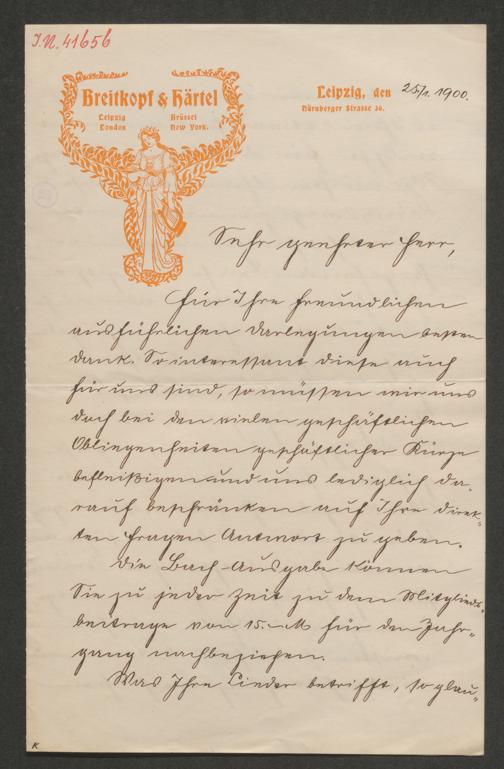 I.N. 41656
Breitkopf & Härtel
Leipzig Brüssel
London New York.
Leipzig, den 25/1. 1900.
Nürnberger Strasse 36.
Sehr geehrter Herr,
Für Ihre freundlichen
ausführlichen Darlegungen besten
Dank. So interessant diese auch
für uns sind, so müssen wir uns
doch bei den vielen geschäftlichen
Obliegenheiten geschäftlicher Kürze
befleißigen und uns lediglich da-
rauf beschränken auf Ihre direk-
ten Fragen Antwort zu geben.
Die Bach-Ausgabe können
Sie zu jeder Zeit zu dem Mitglieds-
beitrage von 15.-M für den Jahr-
gang nachbeziehen.
Was Ihre Lieder betrifft, so glau-
K